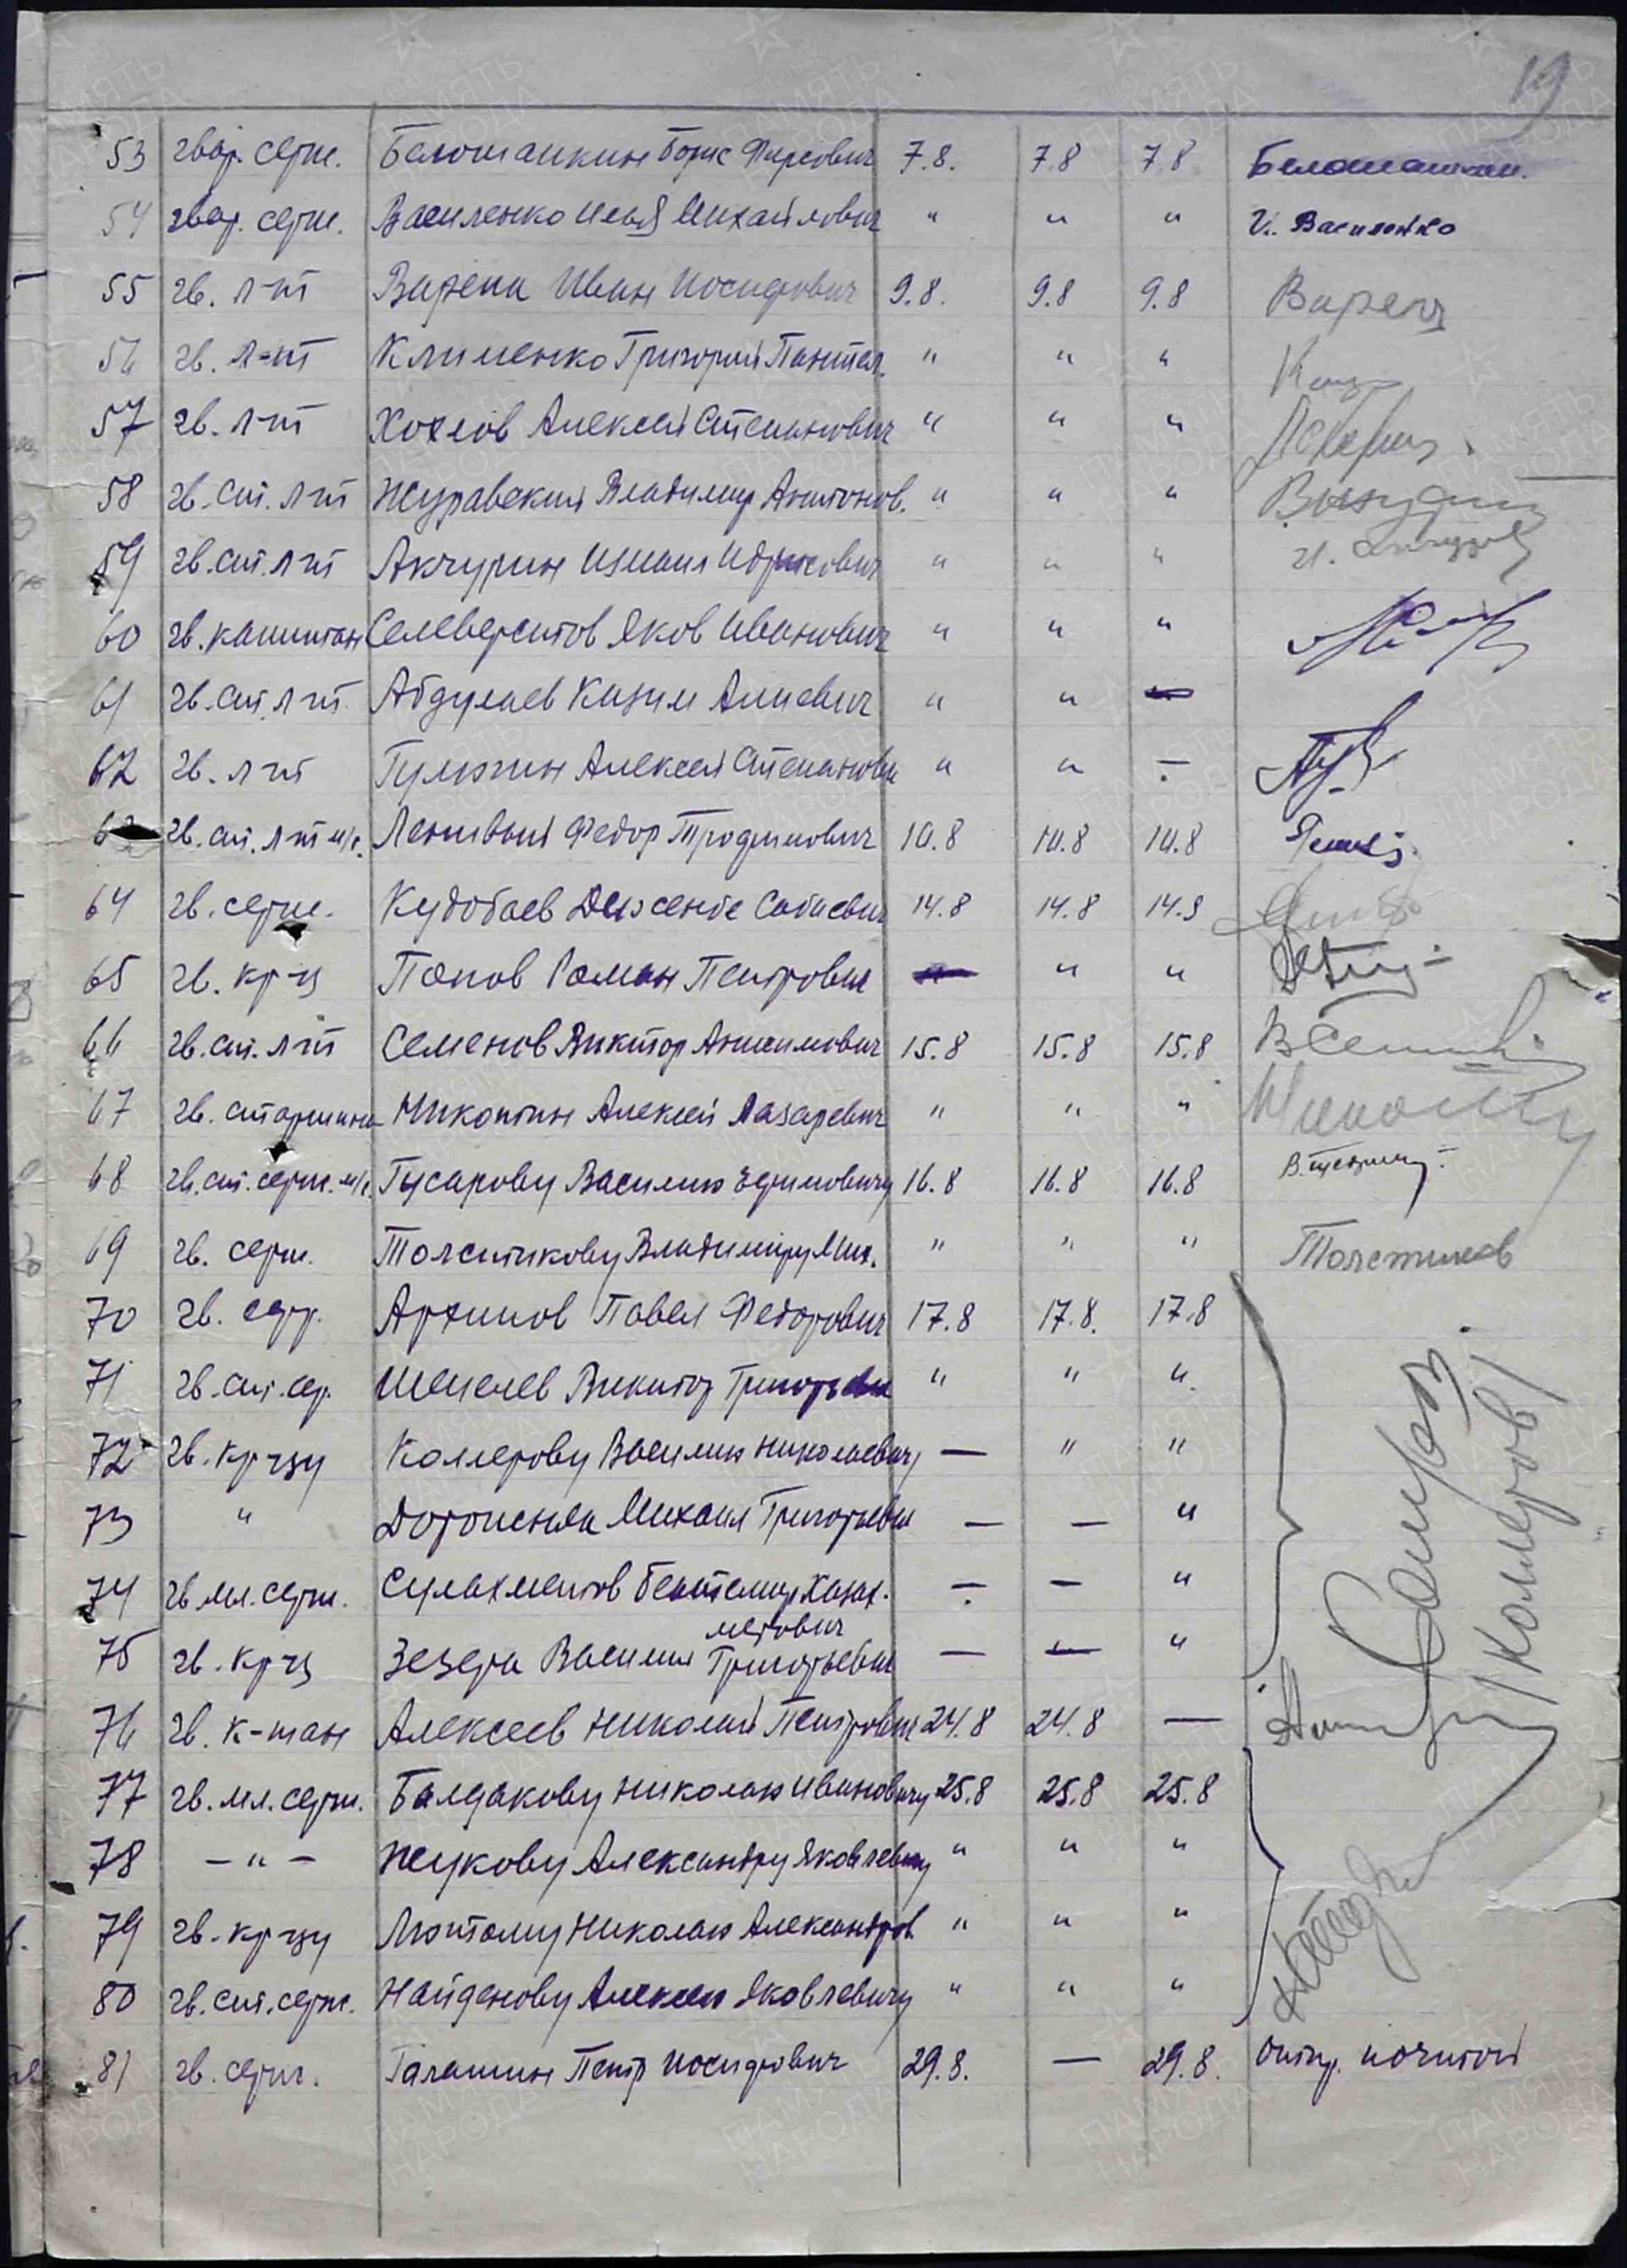 19
53 гвар. серж. Белошапкин Борис Фирсович 7.8. 7.8 7.8 Белошапкин.
54 гвар. серж. Василенко Илья Михайлович " " " И. Василенко
55 гв. л-нт Варена Иван Иосифович 9.8. 9.8 9.8
56 гв. л-нт Клименко Григорий Пантел. " " "
57 гв. л-нт Хохлов Алексей Степанович " " "
58 гв. ст. л-нт Журавский Владимир Антонов. " " "
59 гв. ст. л-нт Акчурин Исмаил Идрисович " " " И. Акчурин
60 гв. капитан Селеверстов Яков Иванович " " "
61 гв. ст. л-нт Абдулаев Казим Алиевич " " —
62 гв. л-нт Гулюгин Алексей Степанович " " —
63 гв. ст. л-нт м/с. Ленивый Федор Трофимович 10.8 10.8 10.8
64 гв. серж. Кудобаев Сабаевич 14.8 14.8 14.8
65 гв. кр-ц Попов Роман Петрович — " "
66 гв. ст. л-нт Семенов Виктор Анисимович 15.8 15.8 15.8
67 гв. старшина Никонтин Алексей Лазаревич " " "
68 гв. ст. серж. м/с. Гусарову Василию Ефимовичу 16.8 16.8 16.8
69 гв. серж. Толстикову Владимиру Мих. " " " Толстиков
70 гв. сер. Архипов Павел Федорович 17.8 17.8. 17.8
71 гв. ст. сер. Шепелев Виктор Григорьевич " " "
72 гв. кр-цу Коллерову Василию Николаевичу — " " /Коллеров/
73 " Михаил Григорьевич — — "
74 гв. мл. серж. Сулахметов — — "
метович
75 гв. кр-ц Зезера Василий Григорьевич — — "
76 гв. к-тан Алексеев Николай Петрович 24.8 24.8 —
77 гв. мл. серж. Балдакову Николаю Ивановичу 25.8 25.8 25.8
78 — " — Жукову Александру Яковлевичу " " "
79 гв. кр-цу Лютому Николаю Александров. " " "
80 гв. ст. серж. Найденову Алексею Яковлевичу " " "
81 гв. серж. Галашин Петр Иосифович 29.8. — 29.8. Отпр. почтой